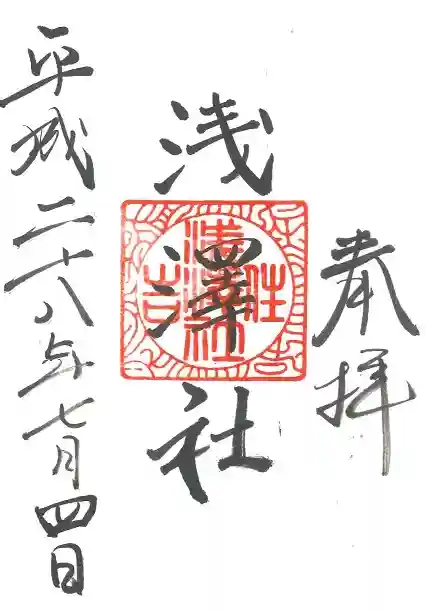 奉拝
浅澤社
住吉
浅澤社
平成二十八年七月四日